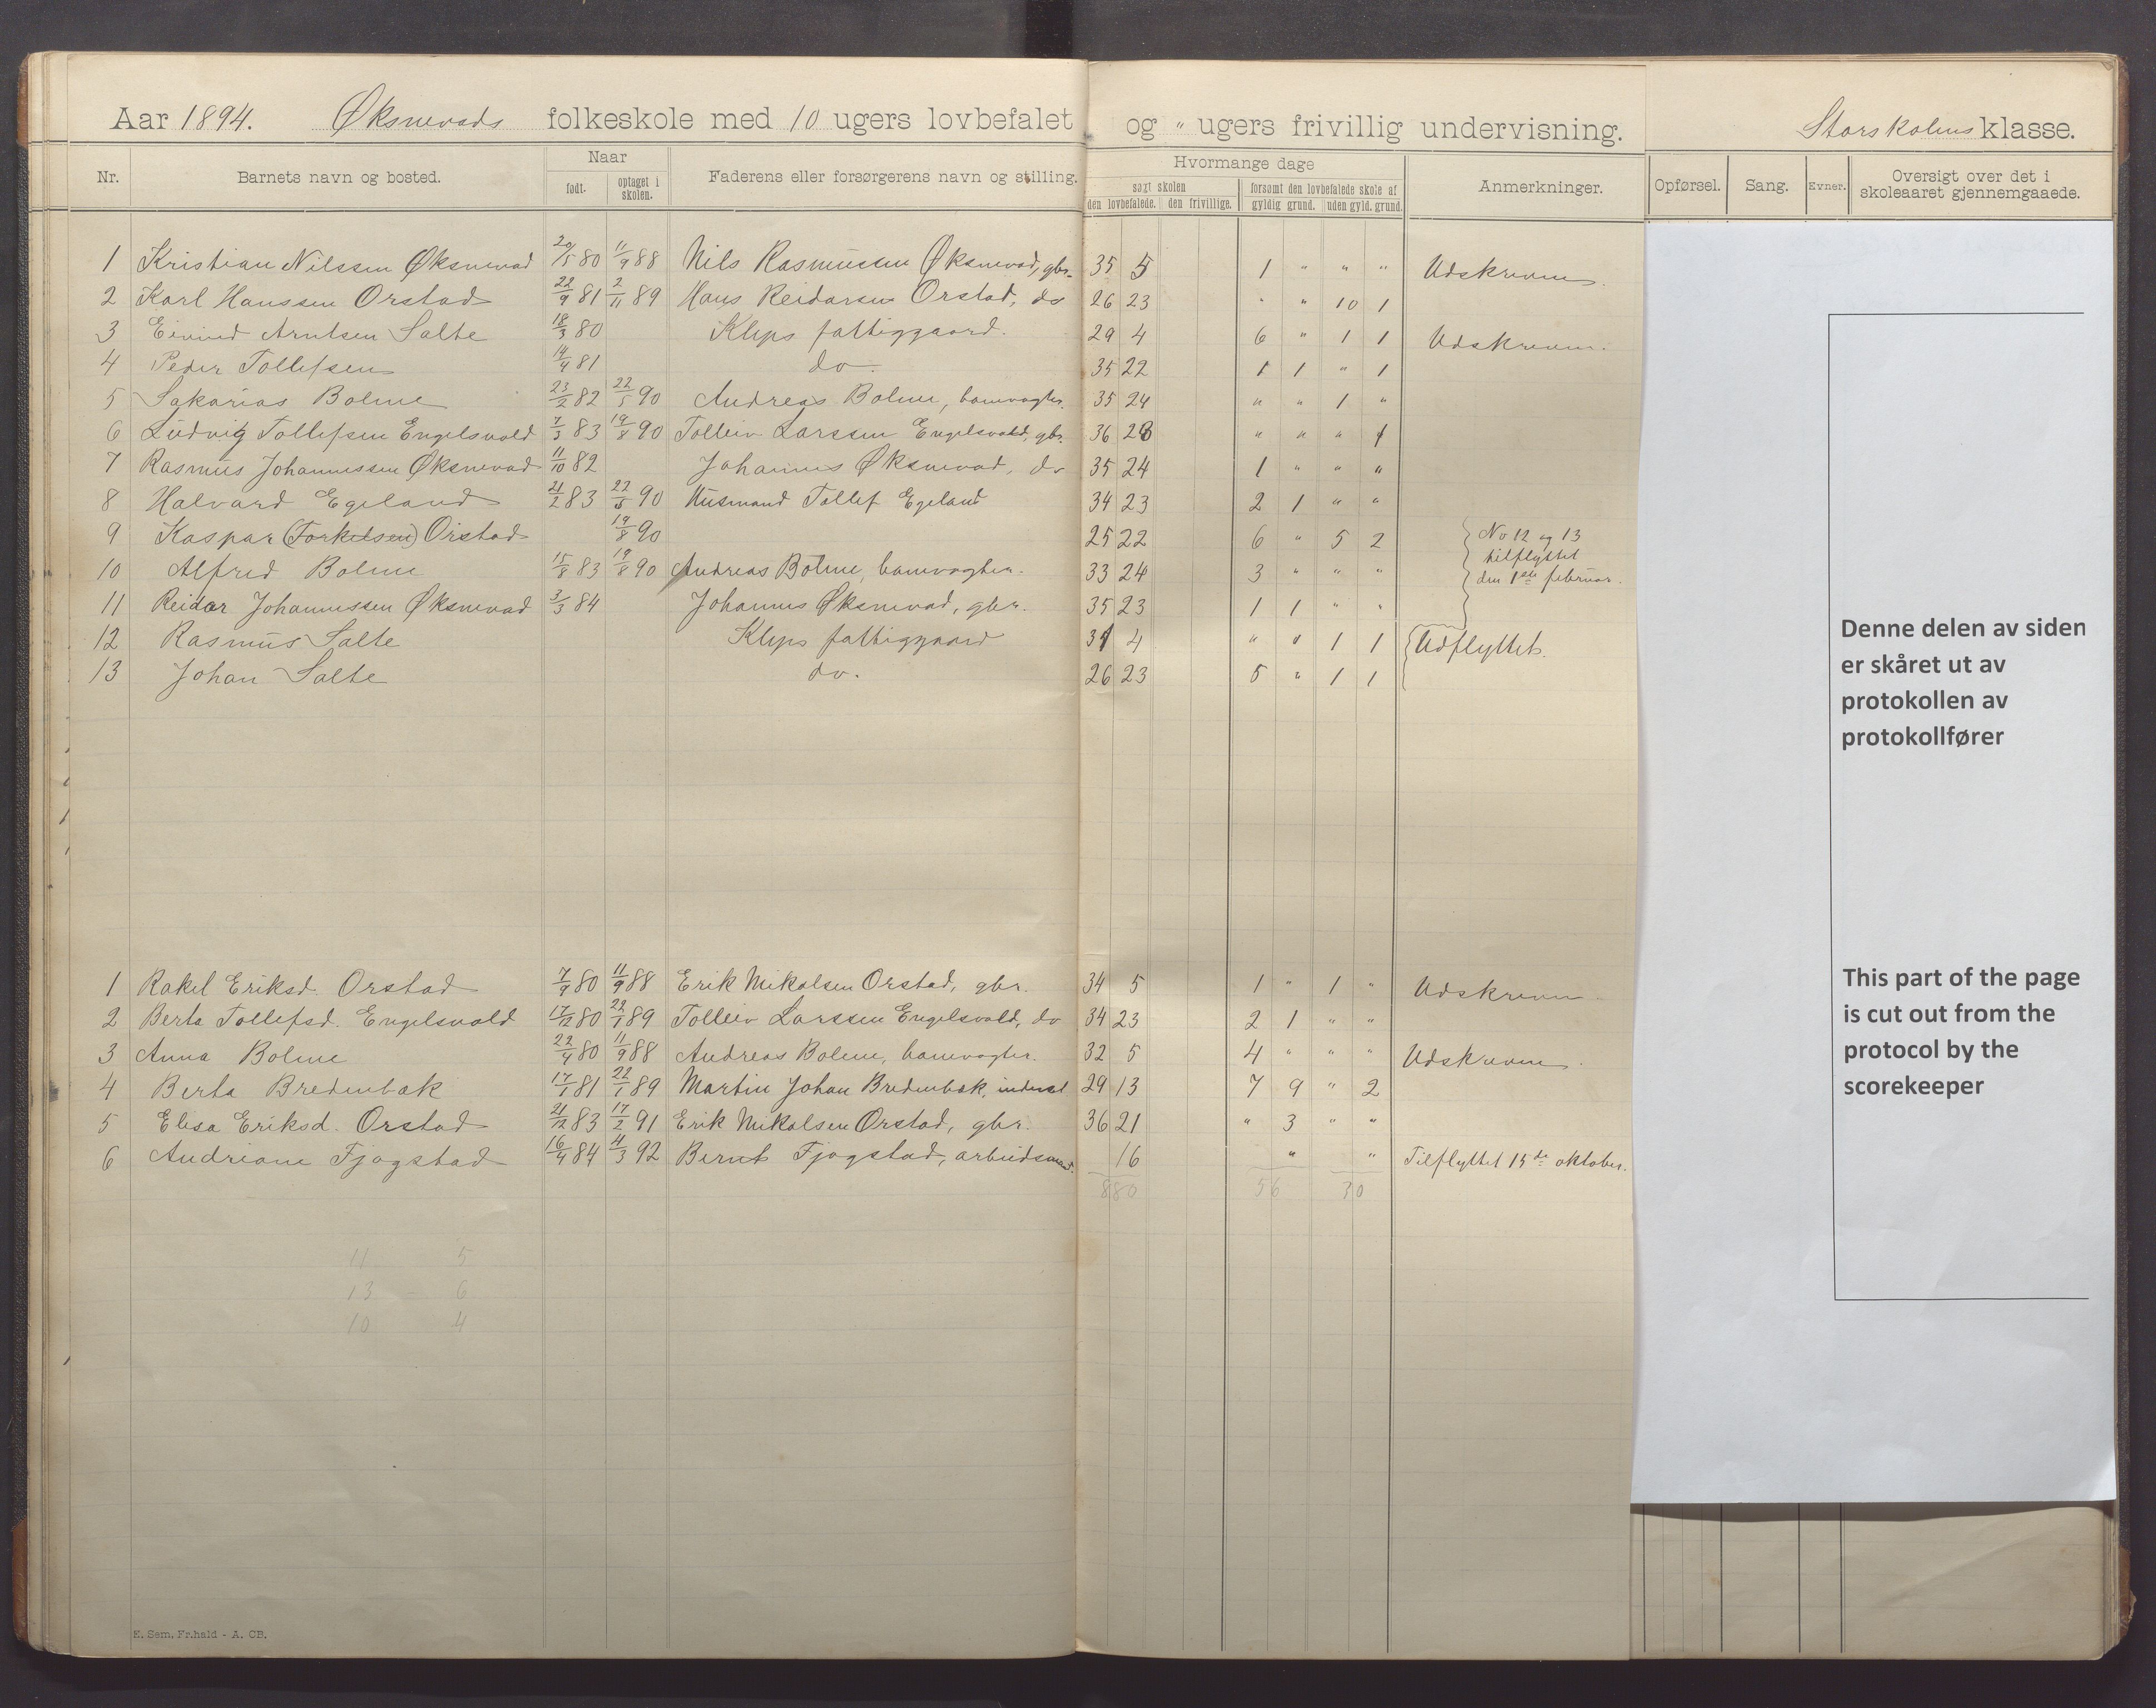 Aar 1894. Øksnevads folkeskole med 10 ugers lovbefalet og " ugers frivillig undervisning. Storskolens klasse.
Nr. Barnets navn og bosted. Naar født. optaget i skolen. Faderens eller forsørgerens navn og stilling. Hvormange dage søgt skolen den lovbefalede. den frivillige. forsømt den lovbefalede skole af gyldig grund. uden gyld. grund. Anmerkninger. Opførsel. Sang. Evner. Oversigt over det i skoleaaret gjennemgaaede.
1 Kristian Nilssen Øksnevad 20/5 80 11/9 88 Nils Rasmussen Øksnevad, gbr. 35 5 1 " " " Udskreven.
2 Karl Hanssen Orstad 22/9 81 2/11 89 Hans Reidarsen Orstad, do 26 23 " " 10 1
3 Eivind Arntsen Salte 18/3 80 Kleps fattiggaard. 29 4 6 " 1 1 Udskreven.
4 Peder Tollefsen 14/4 81 do. 35 22 1 1 " 1
5 Sakarias Bolme 23/2 82 22/5 90 Andreas Bolme, banevogter. 35 24 " " 1 "
6 Ludvig Tollefsen Engelsvold 7/3 83 19/8 90 Tolleiv Larssen Engelsvold, gbr. 36 23 " " " 1
7 Rasmus Johannessen Øksnevad 11/10 82 Johannes Øksnevad, do 35 24 1 " " "
8 Halvard Egeland 21/2 83 22/5 90 Husmand Tollef Egeland 34 23 2 1 " "
9 Kaspar (Torkelsen) Orstad 19/8 90 25 22 6 " 5 2 No 12 og 13
tilflyttet
10 Alfred Bolme 15/8 83 19/8 90 Andreas Bolme, banevogter. 33 24 3 " " " den 1ste februar.
11 Reidar Johannessen Øksnevad 3/3 84 Johannes Øksnevad, gbr. 35 23 1 1 " "
12 Rasmus Salte Kleps fattiggaard 31 4 " " 1 1 Udflyttet.
13 Johan Salte do. 26 23 5 " 1 1
1 Rakel Eriksd. Orstad 7/9 80 11/9 88 Erik Mikalsen Orstad, gbr. 34 5 1 " 1 " Udskreven.
2 Berta Tollefsd. Engelsvold 17/12 80 22/1 89 Tolleiv Larssen Engelsvold, do 34 23 2 1 " "
3 Anna Bolme 22/4 80 11/9 88 Andreas Bolme, banevogter. 32 5 4 " " " Udskreven.
4 Berta Bredenbak 17/1 81 22/1 89 Martin Johan Bredenbak, inderst 29 13 7 9 " 2
5 Elisa Eriksd. Orstad 21/12 83 17/2 91 Erik Mikalsen Orstad, gbr. 36 21 " 3 " "
6 Andriane Fjogstad 16/4 84 11/3 92 Bernt Fjogstad, arbeidsmand. 16 " " Tilflyttet 15de oktober.
880 56 30
11 5
13 - 6
10 4
E. Sem, Fr.hald - A. CB.
Denne delen av siden
er skåret ut av
protokollen av
protokollfører
This part of the page
is cut out from the
protocol by the
scorekeeper